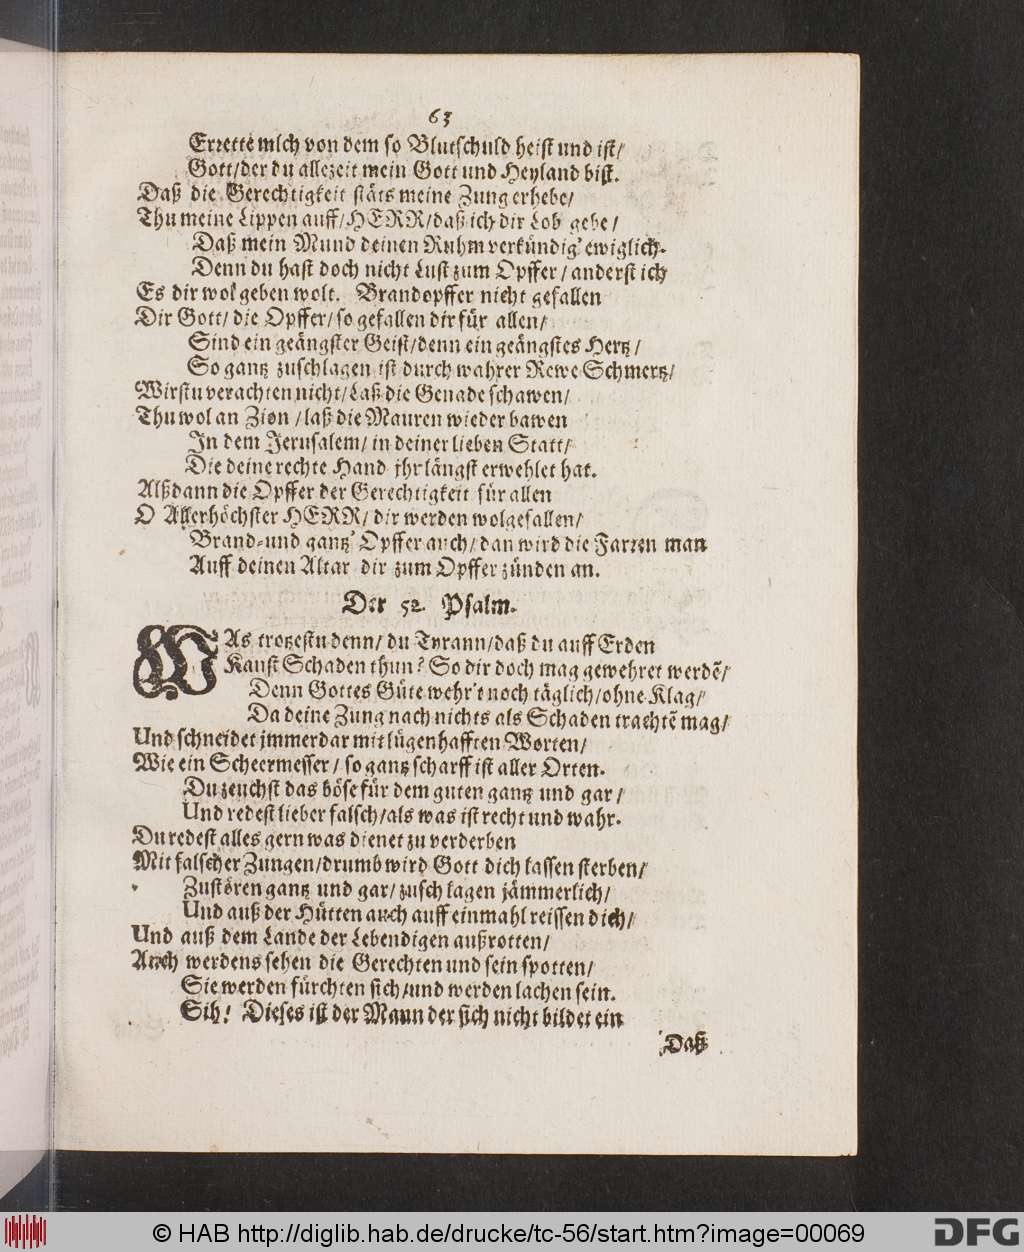 63
Errette mich von dem so Blutschuld heist und ist/
Gott/der du allezeit mein Gott und Heyland bist.
Daß die Gerechtigkeit stäts meine Zung erhebe/
Thu meine Lippen auff/HERR/daß ich dir Lob gebe/
Daß mein Mund deinen Ruhm verkündig' ewiglich.
Denn du hast doch nicht Lust zum Opffer/anderst ich
Es dir wol geben wolt. Brandopffer nicht gefallen
Dir Gott/die Opffer/so gefallen dir für allen/
Sind ein geängster Geist/denn ein geängstes Hertz/
So gantz zuschlagen ist durch wahrer Rewe Schmertz/
Wirstu verachten nicht/Laß die Genade schawen/
Thu wol an Zion/laß die Mauren wieder bawen
In dem Jerusalem/in deiner lieben Statt/
Die deine rechte Hand jhr längst erwehlet hat.
Alßdann die Opffer der Gerechtigkeit für allen
O Allerhöchster HERR/dir werden wolgefallen/
Brand-und gantz' Opffer auch/dan wird die Farren man
Auff deinen Altar dir zum Opffer zünden an.
Der 52. Psalm.
WAs trotzestu denn/du Tyrann/daß du auff Erden
Kanst Schaden thun? So dir doch mag gewehret werdẽ/
Denn Gottes Güte wehr't noch täglich/ohne Klag/
Da deine Zung nach nichts als Schaden trachtẽ mag/
Und schneidet jmmerdar mit lügenhafften Worten/
Wie ein Scheermesser/so gantz scharff ist aller Orten.
Du zeuchst das böse für dem guten gantz und gar/
Und redest lieber falsch/als was ist recht und wahr.
Du redest alles gern was dienet zu verderben
Mit falscher Zungen/drumb wird Gott dich lassen sterben/
Zustören gantz und gar/zuschlagen jämmerlich/
Und auß der Hütten auch auff einmahl reissen dich/
Und auß dem Lande der Lebendigen außrotten/
Auch werdens sehen die Gerechten und sein spotten/
Sie werden fürchten sich/und werden lachen sein.
Sih! Dieses ist der Mann der sich nicht bildet ein
Daß
© HAB http://diglib.hab.de/drucke/tc-56/start.htm?image=00069
DFG